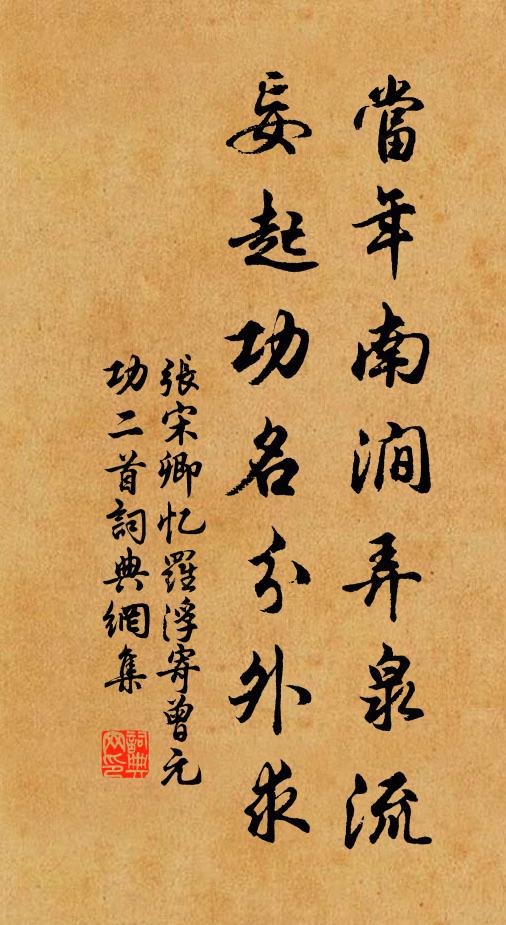 當年南澗弄泉流
妄起功名分外求
張宋卿忆羅浮寄曾元
功二首詞典網集
詞典
网印